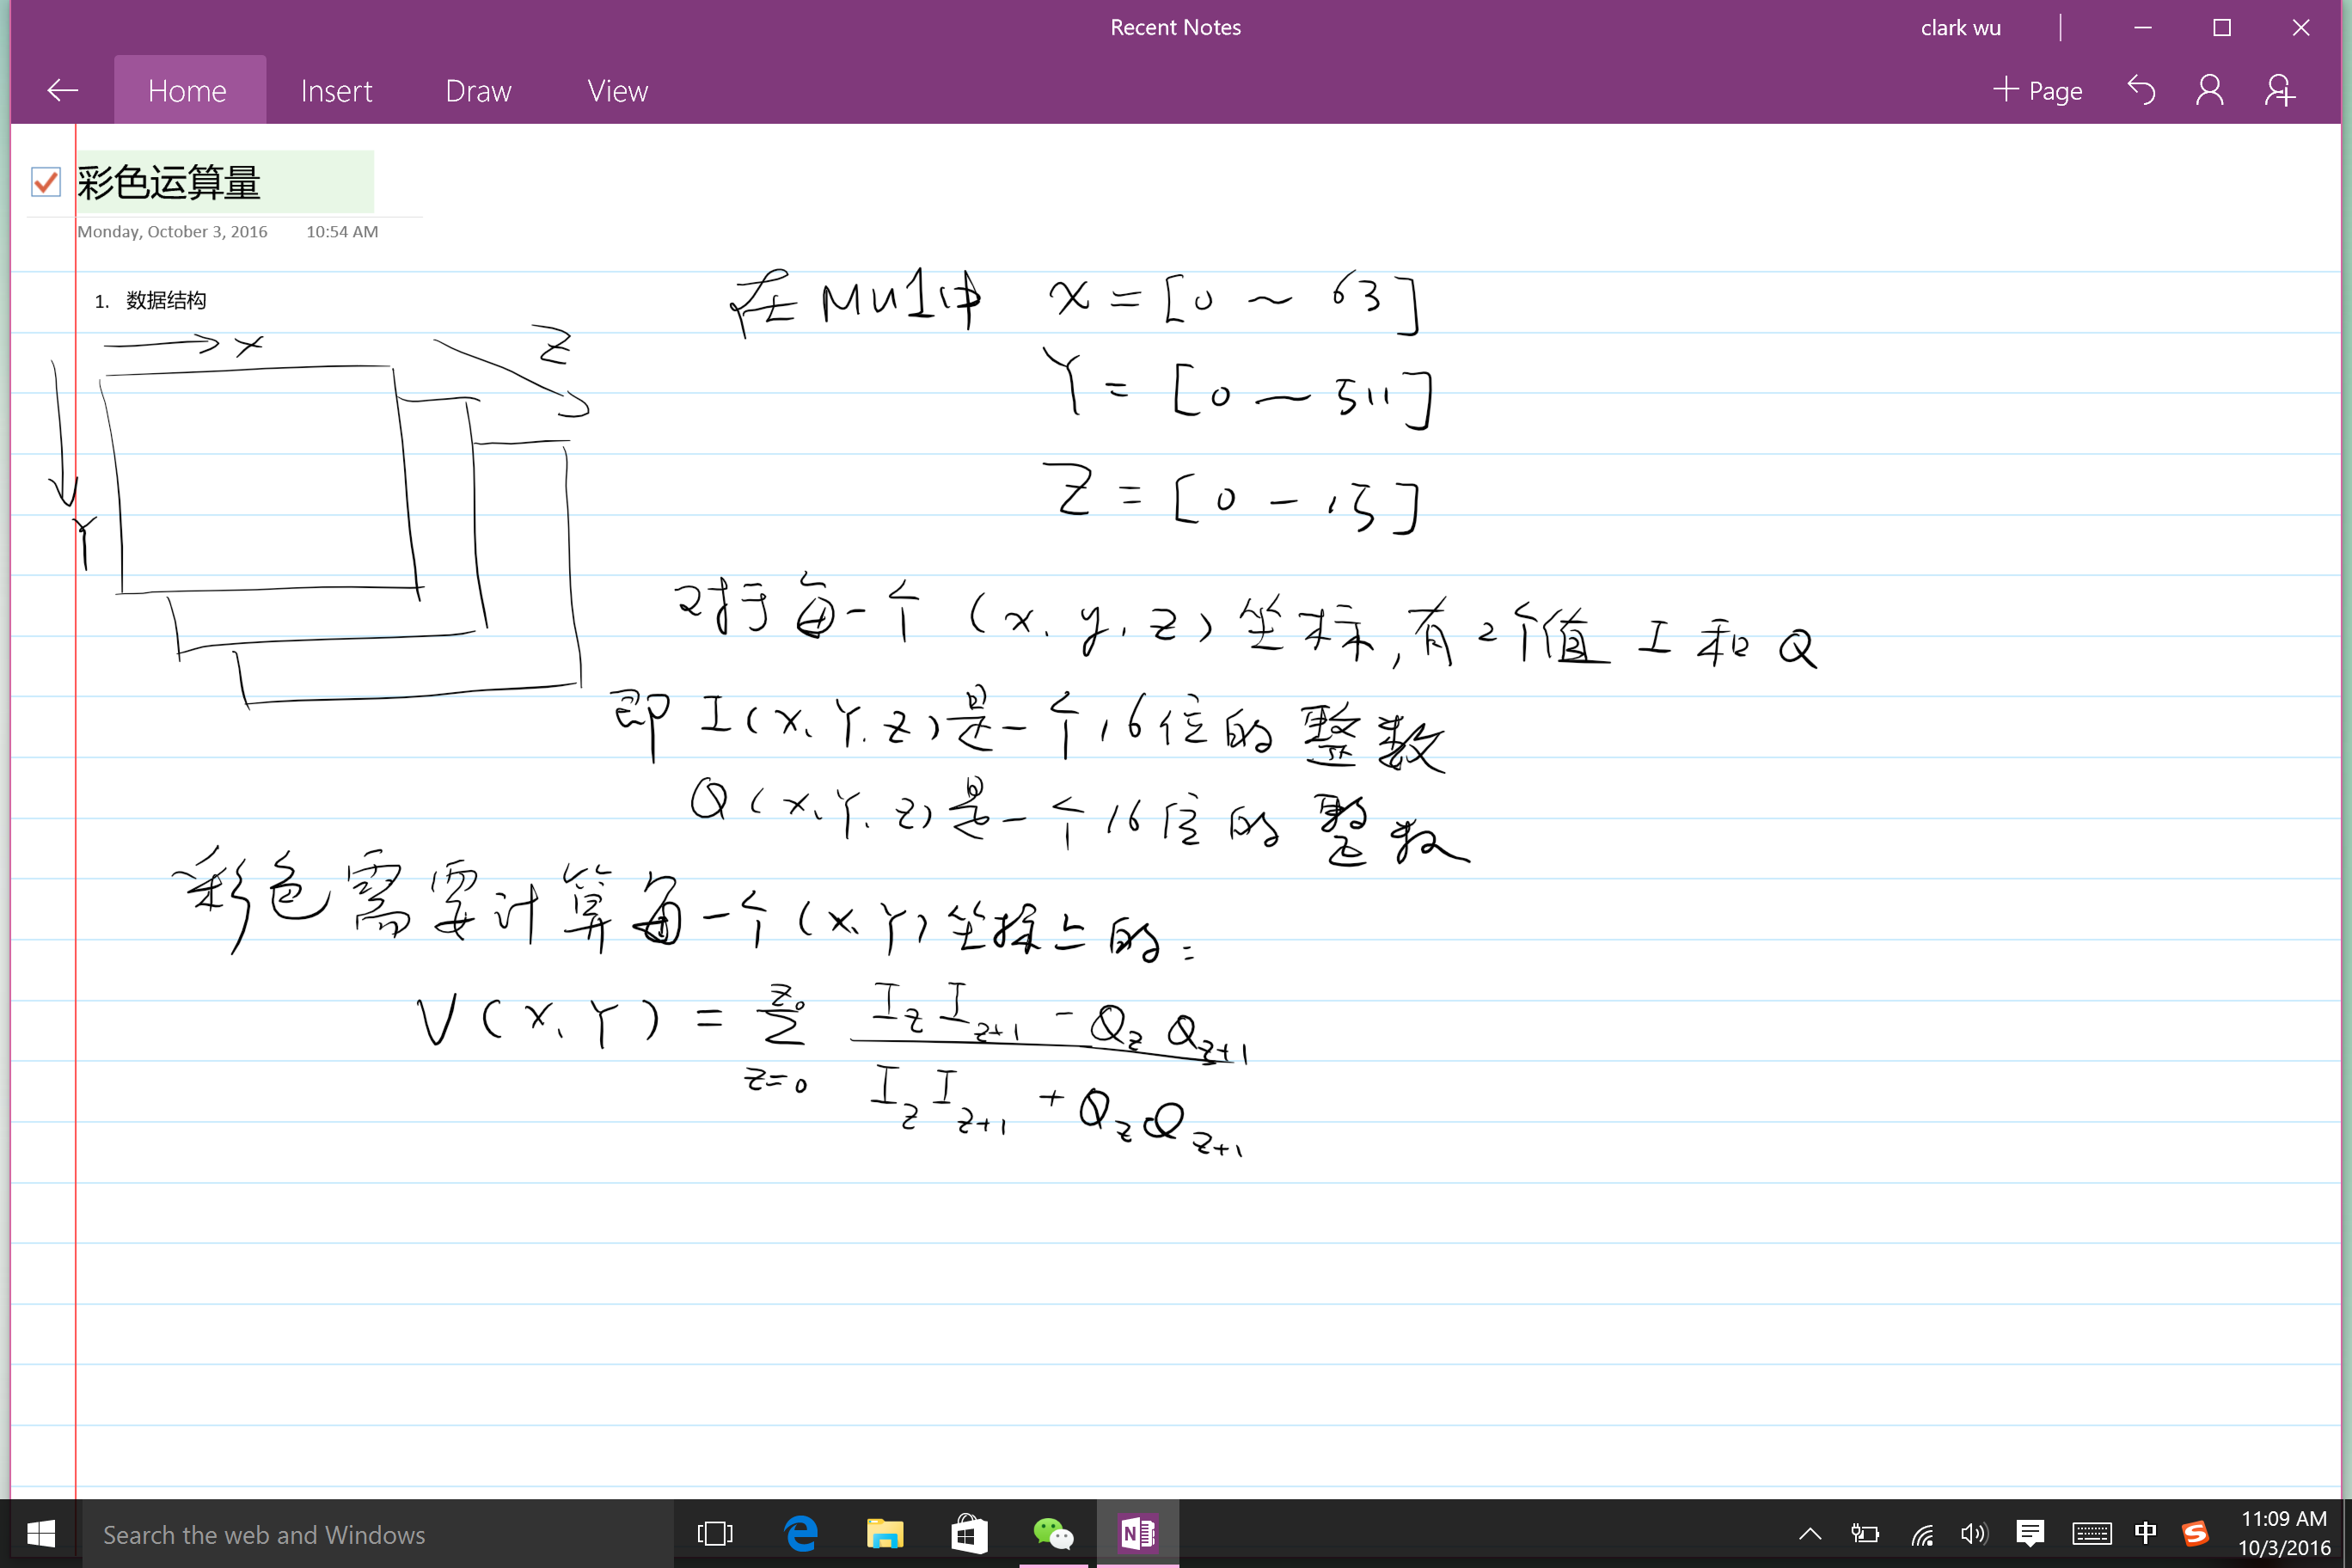 Recent Notes
clark wu
Home Insert Draw View
+ Page
彩色运算量
Monday, October 3, 2016 10:54 AM
1. 数据结构
X
Z
Y
在Mu1中 X = [0 ~ 63]
Y = [0 — 511]
Z = [0 - 15]
对于每一个 (x、y、z) 坐标,有2个值 I 和 Q
即 I(X、Y、Z)是一个16位的整数
Q(X、Y、Z)是一个16位的整数
彩色需要计算每一个(X、Y)坐标上的:
V(X、Y) = \sum_{z=0}^{z_0} \frac{I_z I_{z+1} - Q_z Q_{z+1}}{I_z I_{z+1} + Q_z Q_{z+1}}
Search the web and Windows
中
11:09 AM
10/3/2016